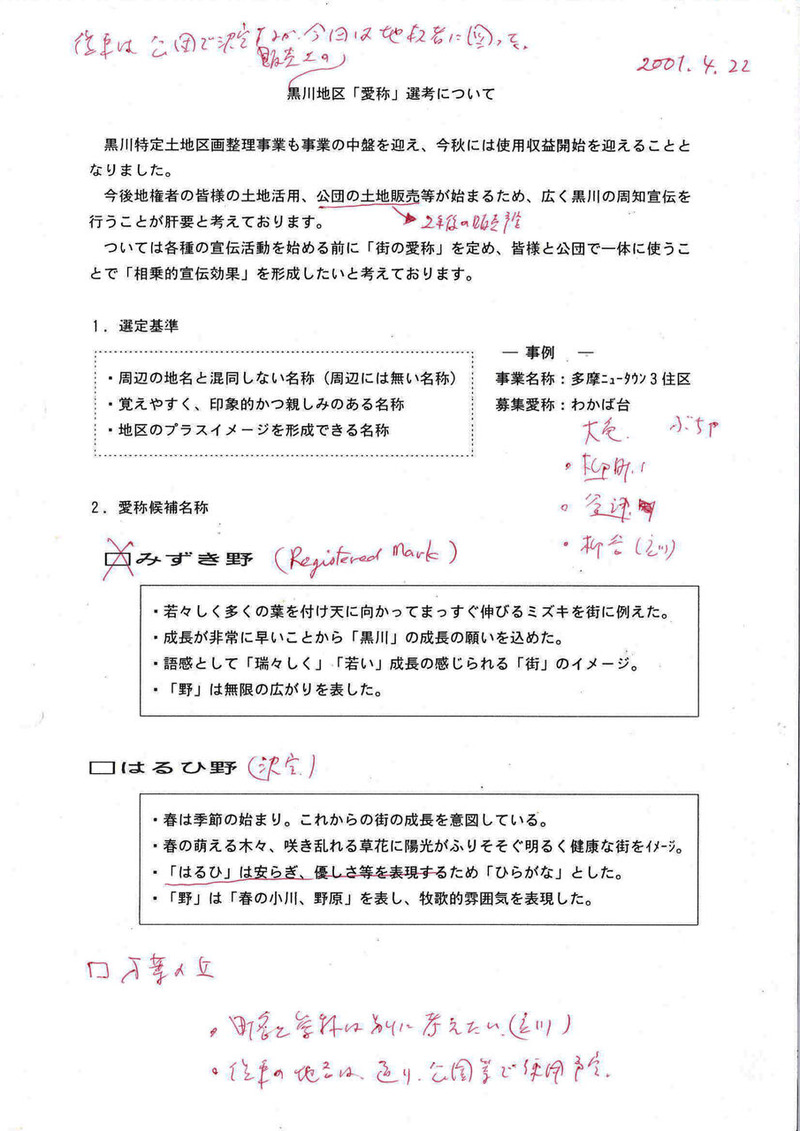 従来は公団で決定するが、今回は地権者に図って。
販売上の
2001.4.22
黒川地区「愛称」選考について
黒川特定土地区画整理事業も事業の中盤を迎え、今秋には使用収益開始を迎えることと
なりました。
今後地権者の皆様の土地活用、公団の土地販売等が始まるため、広く黒川の周知宣伝を
行うことが肝要と考えております。
2年後の販売予定
ついては各種の宣伝活動を始める前に「街の愛称」を定め、皆様と公団で一体に使うこ
とで「相乗的宣伝効果」を形成したいと考えております。
1．選定基準
・周辺の地名と混同しない名称（周辺には無い名称）
・覚えやすく、印象的かつ親しみのある名称
・地区のプラスイメージを形成できる名称
― 事例 ―
事業名称：多摩ﾆｭｰﾀｳﾝ３住区
募集愛称：わかば台
2．愛称候補名称
□みずき野 (Registered Mark)
・若々しく多くの葉を付け天に向かってまっすぐ伸びるミズキを街に例えた。
・成長が非常に早いことから「黒川」の成長の願いを込めた。
・語感として「瑞々しく」「若い」成長の感じられる「街」のイメージ。
・「野」は無限の広がりを表した。
□はるひ野 (決定)
・春は季節の始まり。これからの街の成長を意図している。
・春の萌える木々、咲き乱れる草花に陽光がふりそそぐ明るく健康な街をｲﾒｰｼﾞ。
・「はるひ」は安らぎ、優しさ等を表現するため「ひらがな」とした。
・「野」は「春の小川、野原」を表し、牧歌的雰囲気を表現した。
□ 万葉の丘
・町名と愛称は別に考えたい。(立川)
・従来の地名は、通り、公園等で使用予定。